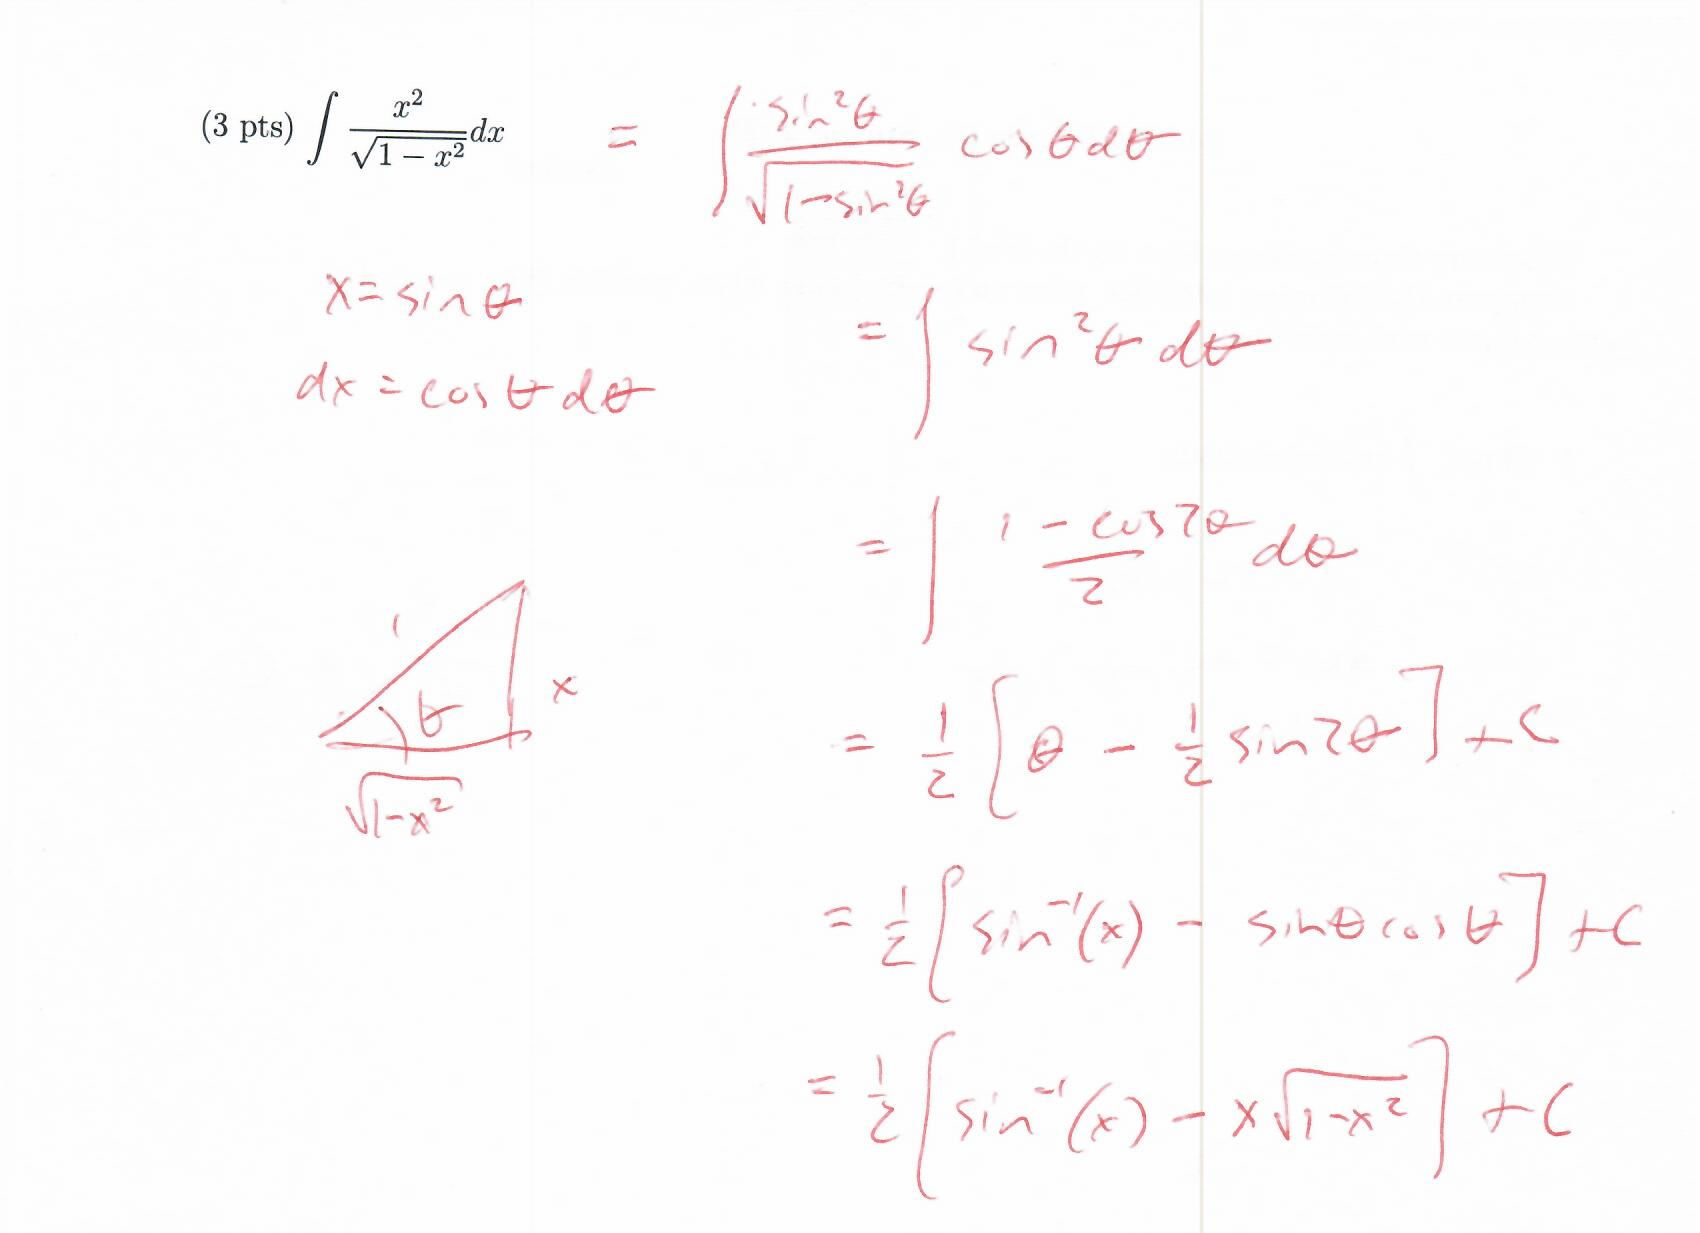 (3 pts) ∫ x²/√(1 − x²) dx = ∫ sin²θ/√(1−sin²θ) cosθ dθ
x = sinθ
dx = cosθ dθ
= ∫ sin²θ dθ
= ∫ (1 − cos2θ)/2 dθ
1
θ
x
√(1−x²)
= 1/2 [θ − 1/2 sin2θ] + C
= 1/2 [sin⁻¹(x) − sinθ cosθ] + C
= 1/2 [sin⁻¹(x) − x√(1−x²)] + C